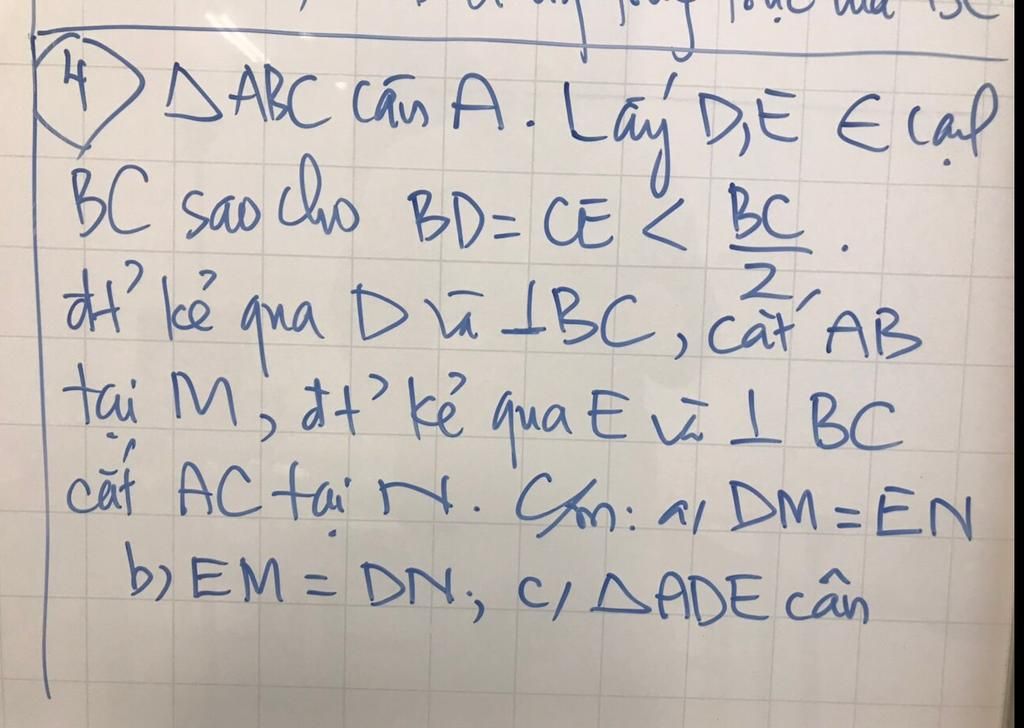 4 △ABC cân A. Lấy D,E ∈ cạnh
BC sao cho BD = CE < BC/2.
đt' kẻ qua D và ⊥BC, cắt AB
tại M, đt' kẻ qua E và ⊥ BC
cắt AC tại N. C/m: a/ DM = EN
b) EM = DN; c/ △ADE cân